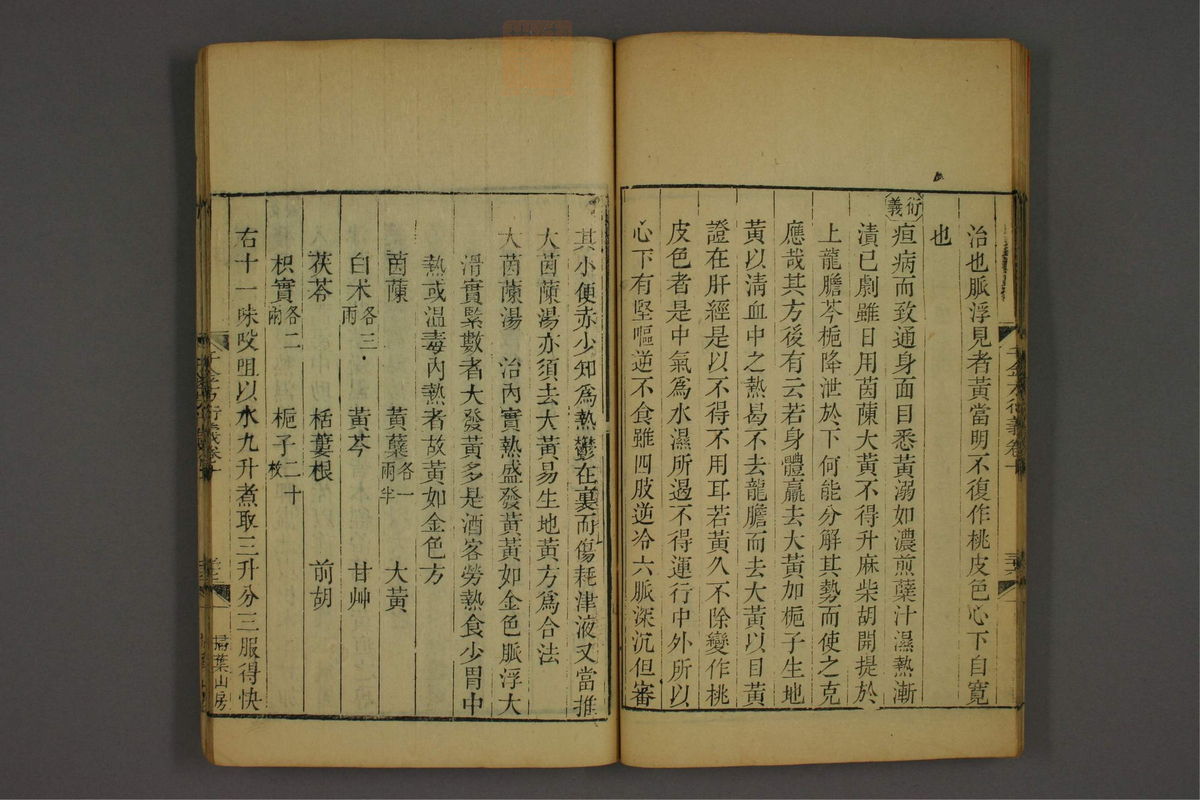 治也脈浮見者黃當明不復作桃皮色心下自寬
也
衍義
疸病而致通身面目悉黃溺如濃煎蘖汁濕熱漸
漬已劇雖日用茵蔯大黃不得升麻柴胡開提於
上龍膽芩梔降泄於下何能分解其勢而使之克
應哉其方後有云若身體羸去大黃加梔子生地
黃以清血中之熱曷不去龍膽而去大黃以目黃
證在肝經是以不得不用耳若黃久不除變作桃
皮色者是中氣為水濕所遏不得運行中外所以
心下有堅嘔逆不食雖四肢逆冷六脈深沉但審
其小便赤少知為熱鬱在裏而傷耗津液又當推
大茵蔯湯亦須去大黃易生地黃方為合法
大茵蔯湯 治內實熱盛發黃黃如金色脈浮大
滑實緊數者大發黃多是酒客勞熱食少胃中
熱或溫毒內熱者故黃如金色方
茵蔯 黃蘖各一兩半 大黃
白朮各三兩 黃芩 甘艸
茯苓 栝蔞根 前胡
枳實各二兩 梔子二十枚
右十一味㕮咀以水九升煮取三升分三服得快
千金方衍義卷十
掃葉山房